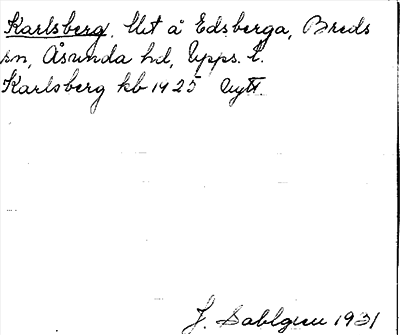 Karlsberg, lht å Edsberga, Breds
sn, Åsunda hd, Upps. l.
Karlsberg kb 1925 Nytt.
J. Sahlgren 1931